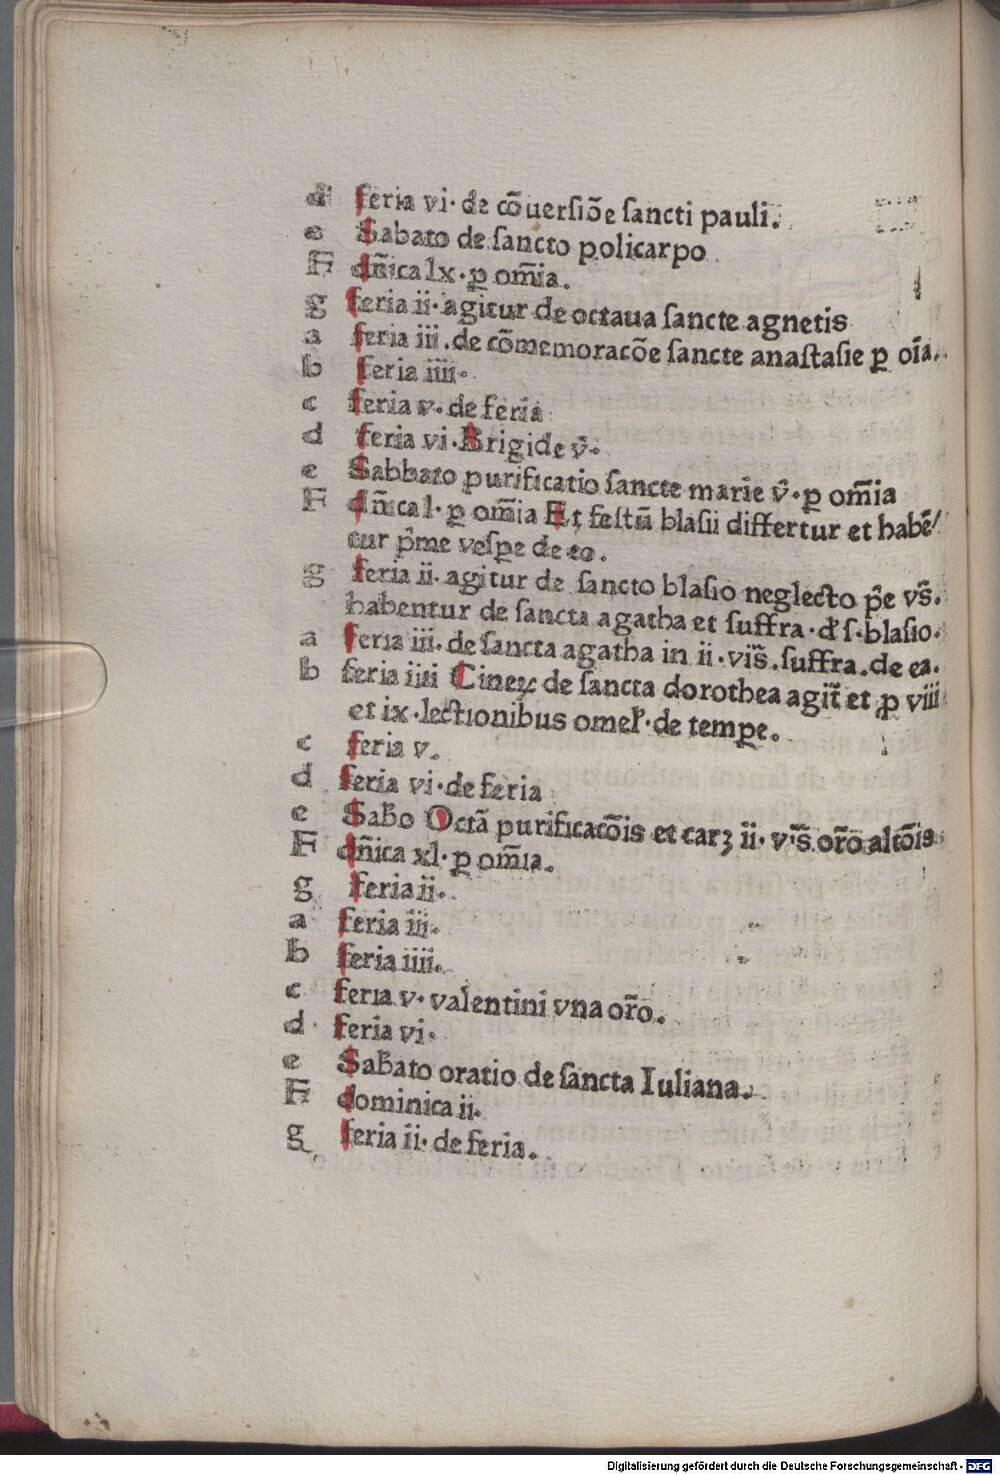 d feria vi· de cōuersiōe sancti pauli.
e Sabato de sancto policarpo
F dn̄ica lx·ꝑ om̄ia.
g feria ii·agitur de octaua sancte agnetis
a feria iii.de cōmemoracōe sancte anastasie ꝑ oīa.
b feria iiii·
c feria v·de feria
d feria vi·Brigide v̄·
e Sabbato purificatio sancte marie v̄·ꝑ om̄ia
F dn̄ica l·ꝑ om̄ia Et festū blasii differtur et habē/
tur p̄me vesꝑe de eo.
g feria ii·agitur de sancto blasio neglecto p̄e vs̄.
habentur de sancta agatha et suffra·d̄ s·blasio·
a feria iii·de sancta agatha in ii·vis̄.suffra.de ea.
b feria iiii Cineꝝ de sancta dorothea agit̄ et ꝑ viii
et ix·lectionibus omel̄·de temꝑe.
c feria v.
d feria vi·de feria
e Sab̄o Octā purificacōis et carꝫ ii·v·s̄ or̄o altōis
F dn̄ica xl·ꝑ om̄ia.
g feria ii·
a feria iii·
b feria iiii.
c feria v·valentini vna or̄o.
d feria vi·
e Sab̄ato oratio de sancta Iuliana.
F dominica ii·
g feria ii·de feria.
Digitalisierung gefördert durch die Deutsche Forschungsgemeinschaft - DFG